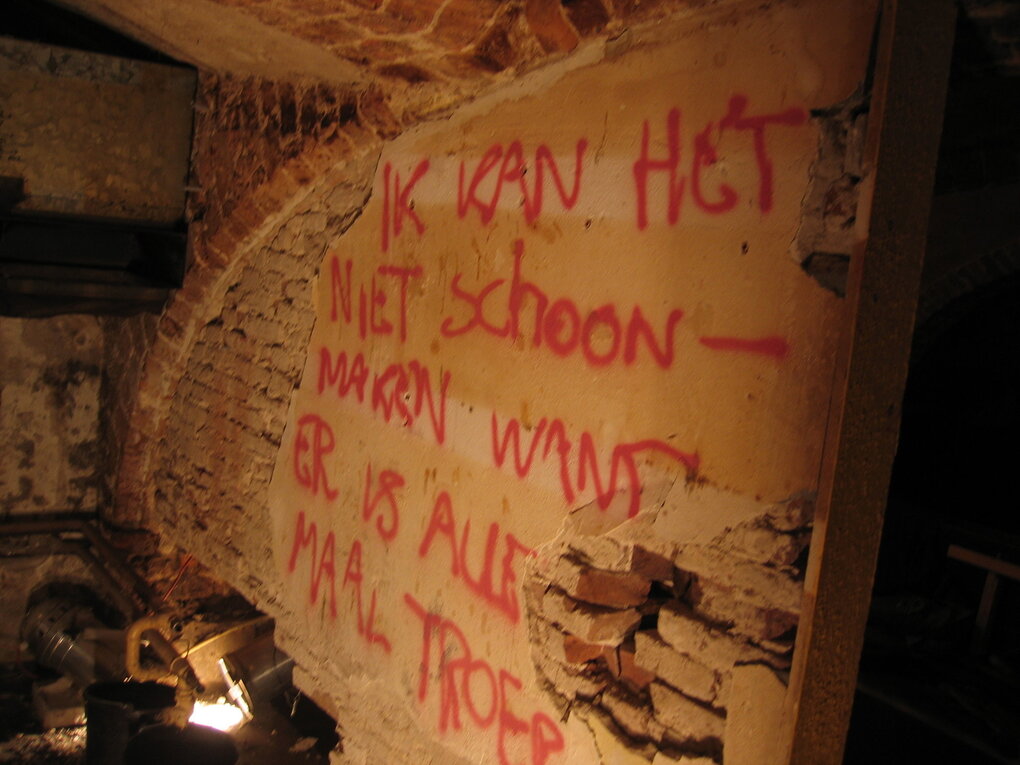 IK KAN HET
NIET SCHOON-
MAKEN WANT
ER IS ALLE
MAAL TROEP